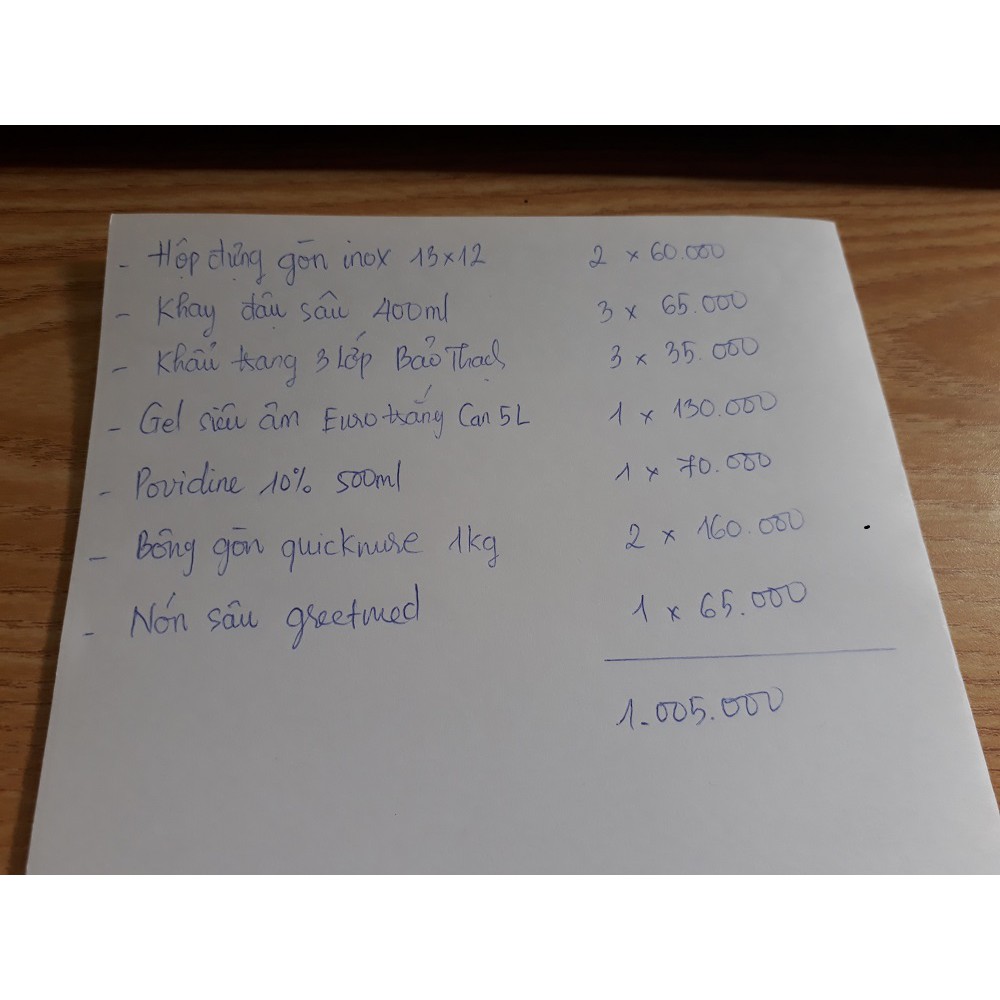 - Hộp đựng gòn inox 13x12 2 x 60.000
- Khay đậu sâu 400ml 3 x 65.000
- Khẩu trang 3 lớp Bảo Thạch 3 x 35.000
- Gel siêu âm Euro trắng Can 5L 1 x 130.000
- Povidine 10% 500ml 1 x 70.000
- Bông gòn quicknurse 1kg 2 x 160.000
- Nón sâu greetmed 1 x 65.000
1.005.000